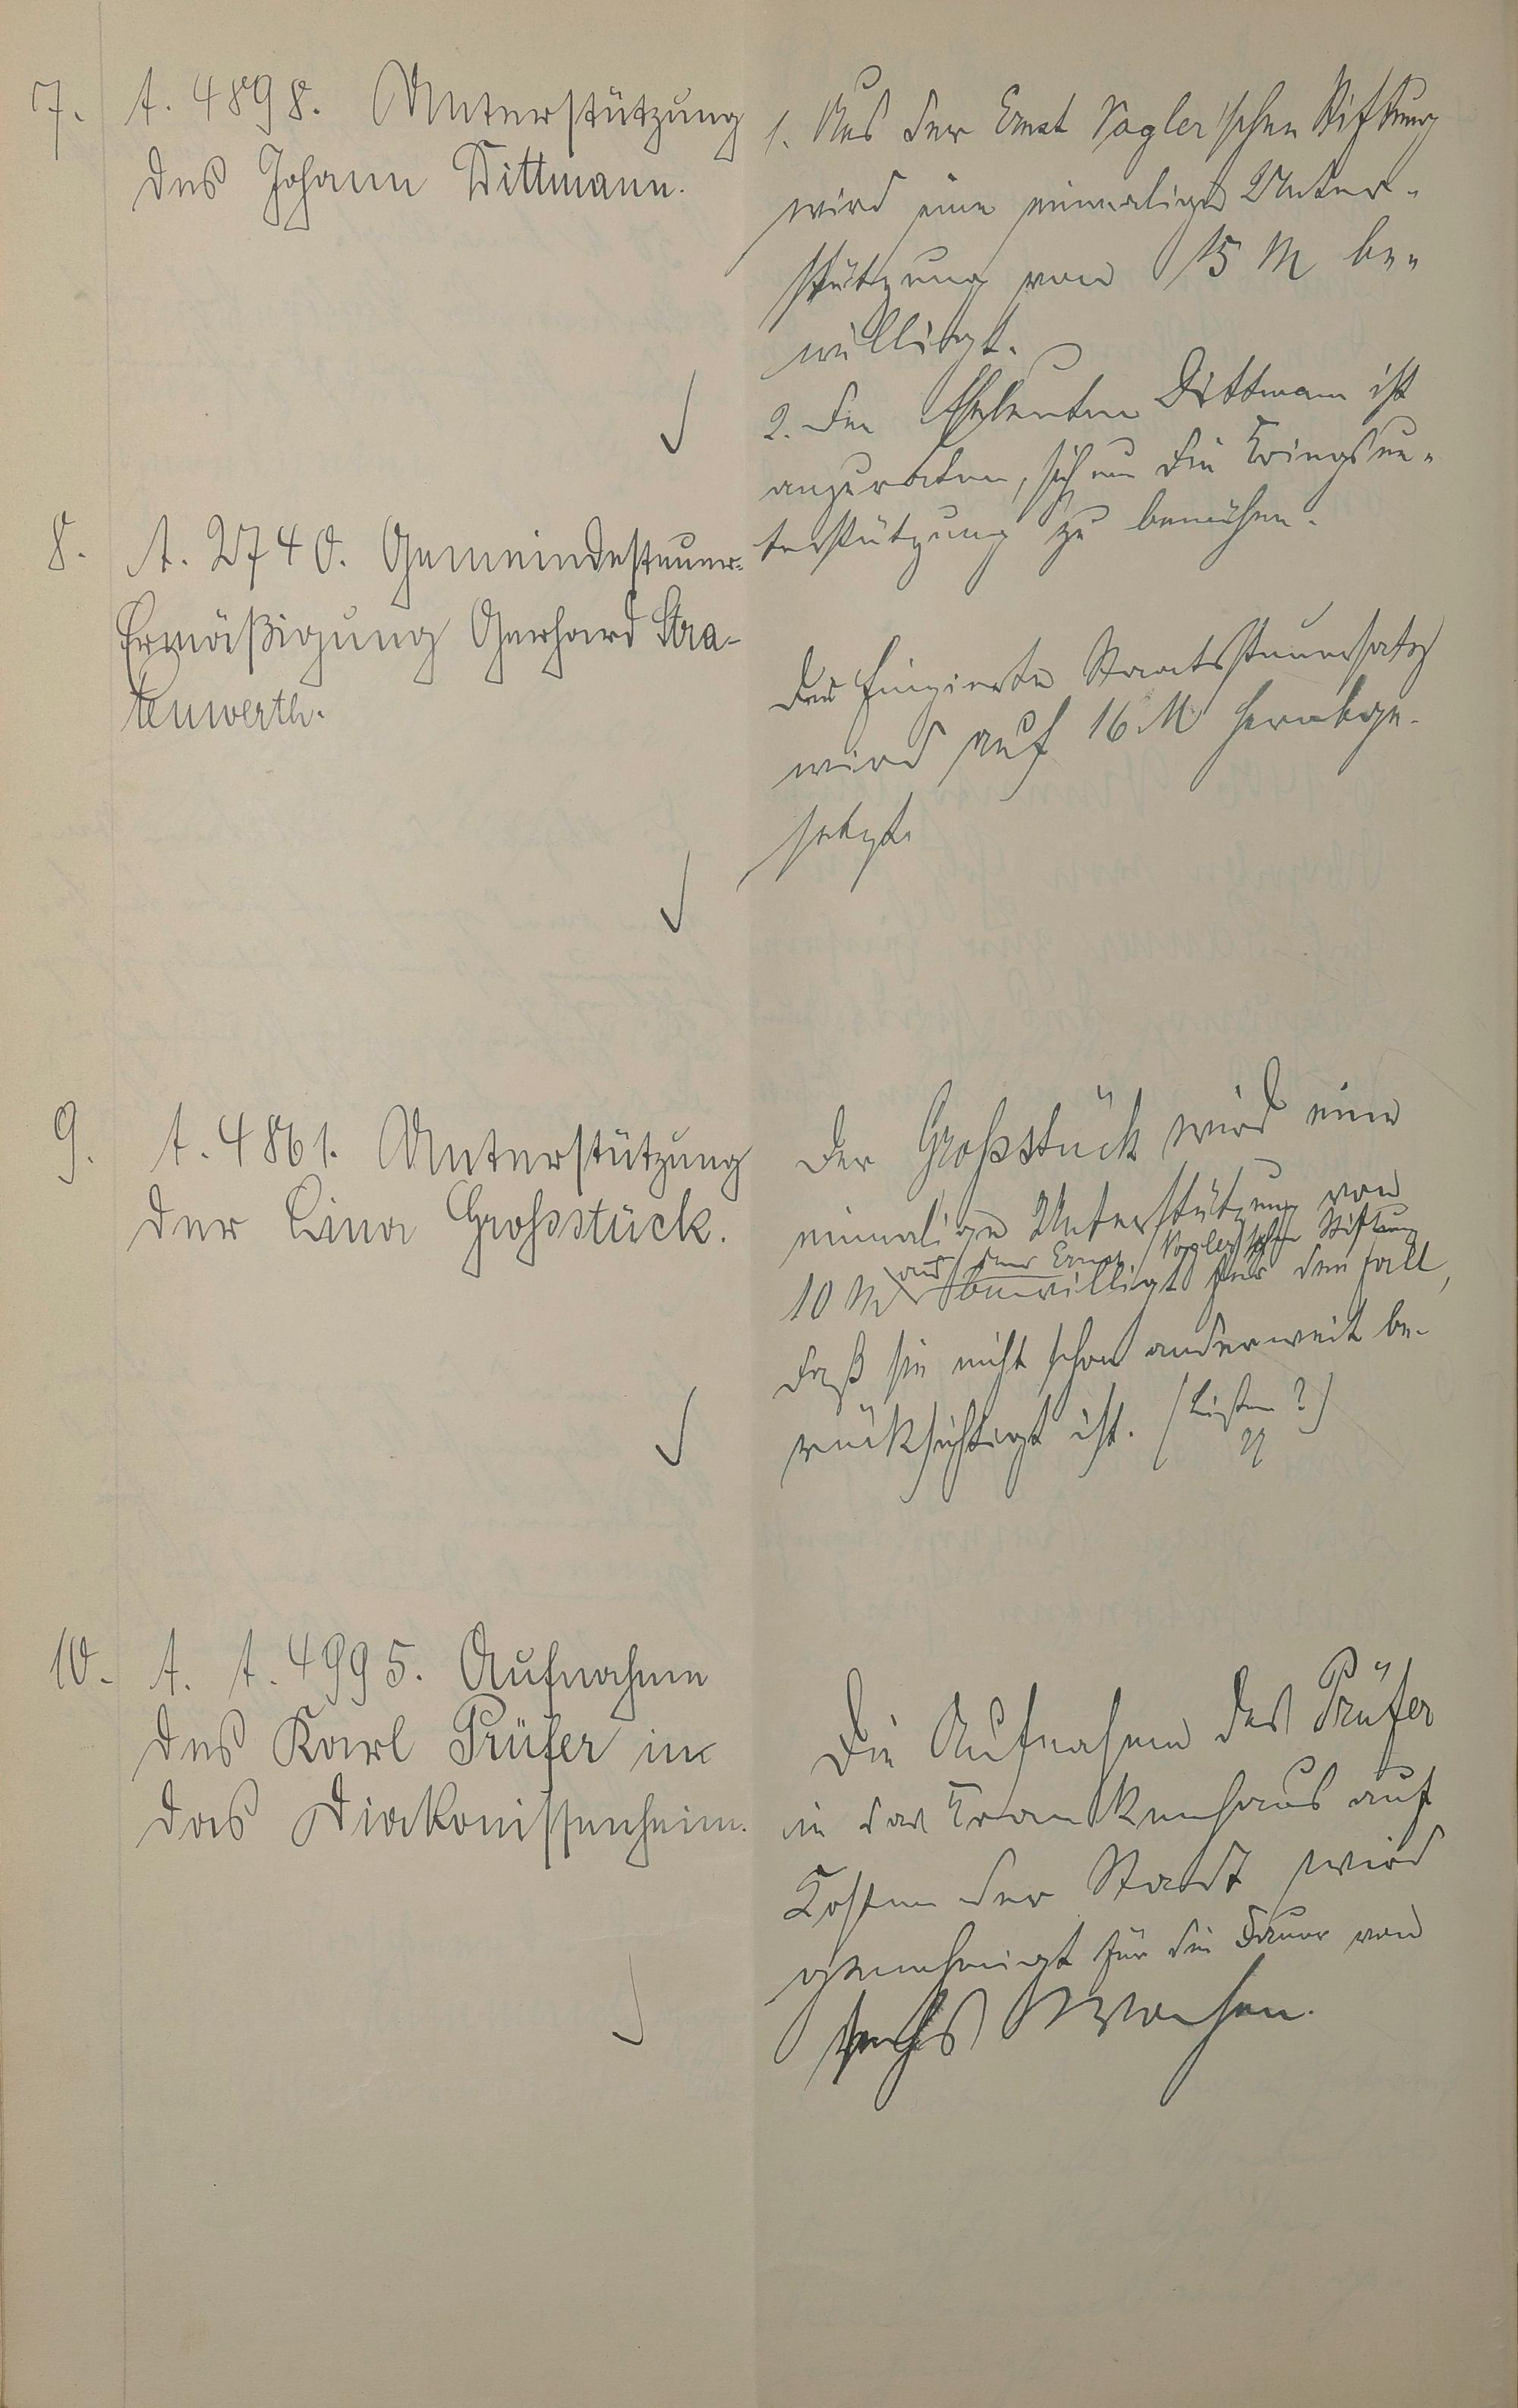 7. t. 4898. Unterstützung
des Johann Dittmann.
1. Aus der Ernst Vogler'schen Stiftung
wird eine einmalige Unter-
stützung von 15 M be-
willigt.
2. Den Eheleuten Dittmann ist
anzuraten, sich um die Kriegsun-
terstützung zu bemühen.
8. t. 2740. Gemeindesteuer-
Ermäßigung Gerhard Stra-
tenwerth.
Der fingierte Staatssteuersatz
wird auf 16 M herabge-
setzt.
9. t. 4861. Unterstützung
der Lina Grossstück.
Der Großstück wird eine
einmalige Unterstützung von
aus der Ernst Vogler'schen Stiftung
10 M bewilligt für den Fall,
daß sie nicht schon anderweit be-
rücksichtigt ist. (Listen?)
10. t. t. 4995. Aufnahme
des Karl Prüfer in
das Diakonissenheim.
Die Aufnahme des Prüfer
in das Krankenhaus auf
Kosten der Stadt wird
genehmigt für die Dauer von
sechs Wochen.